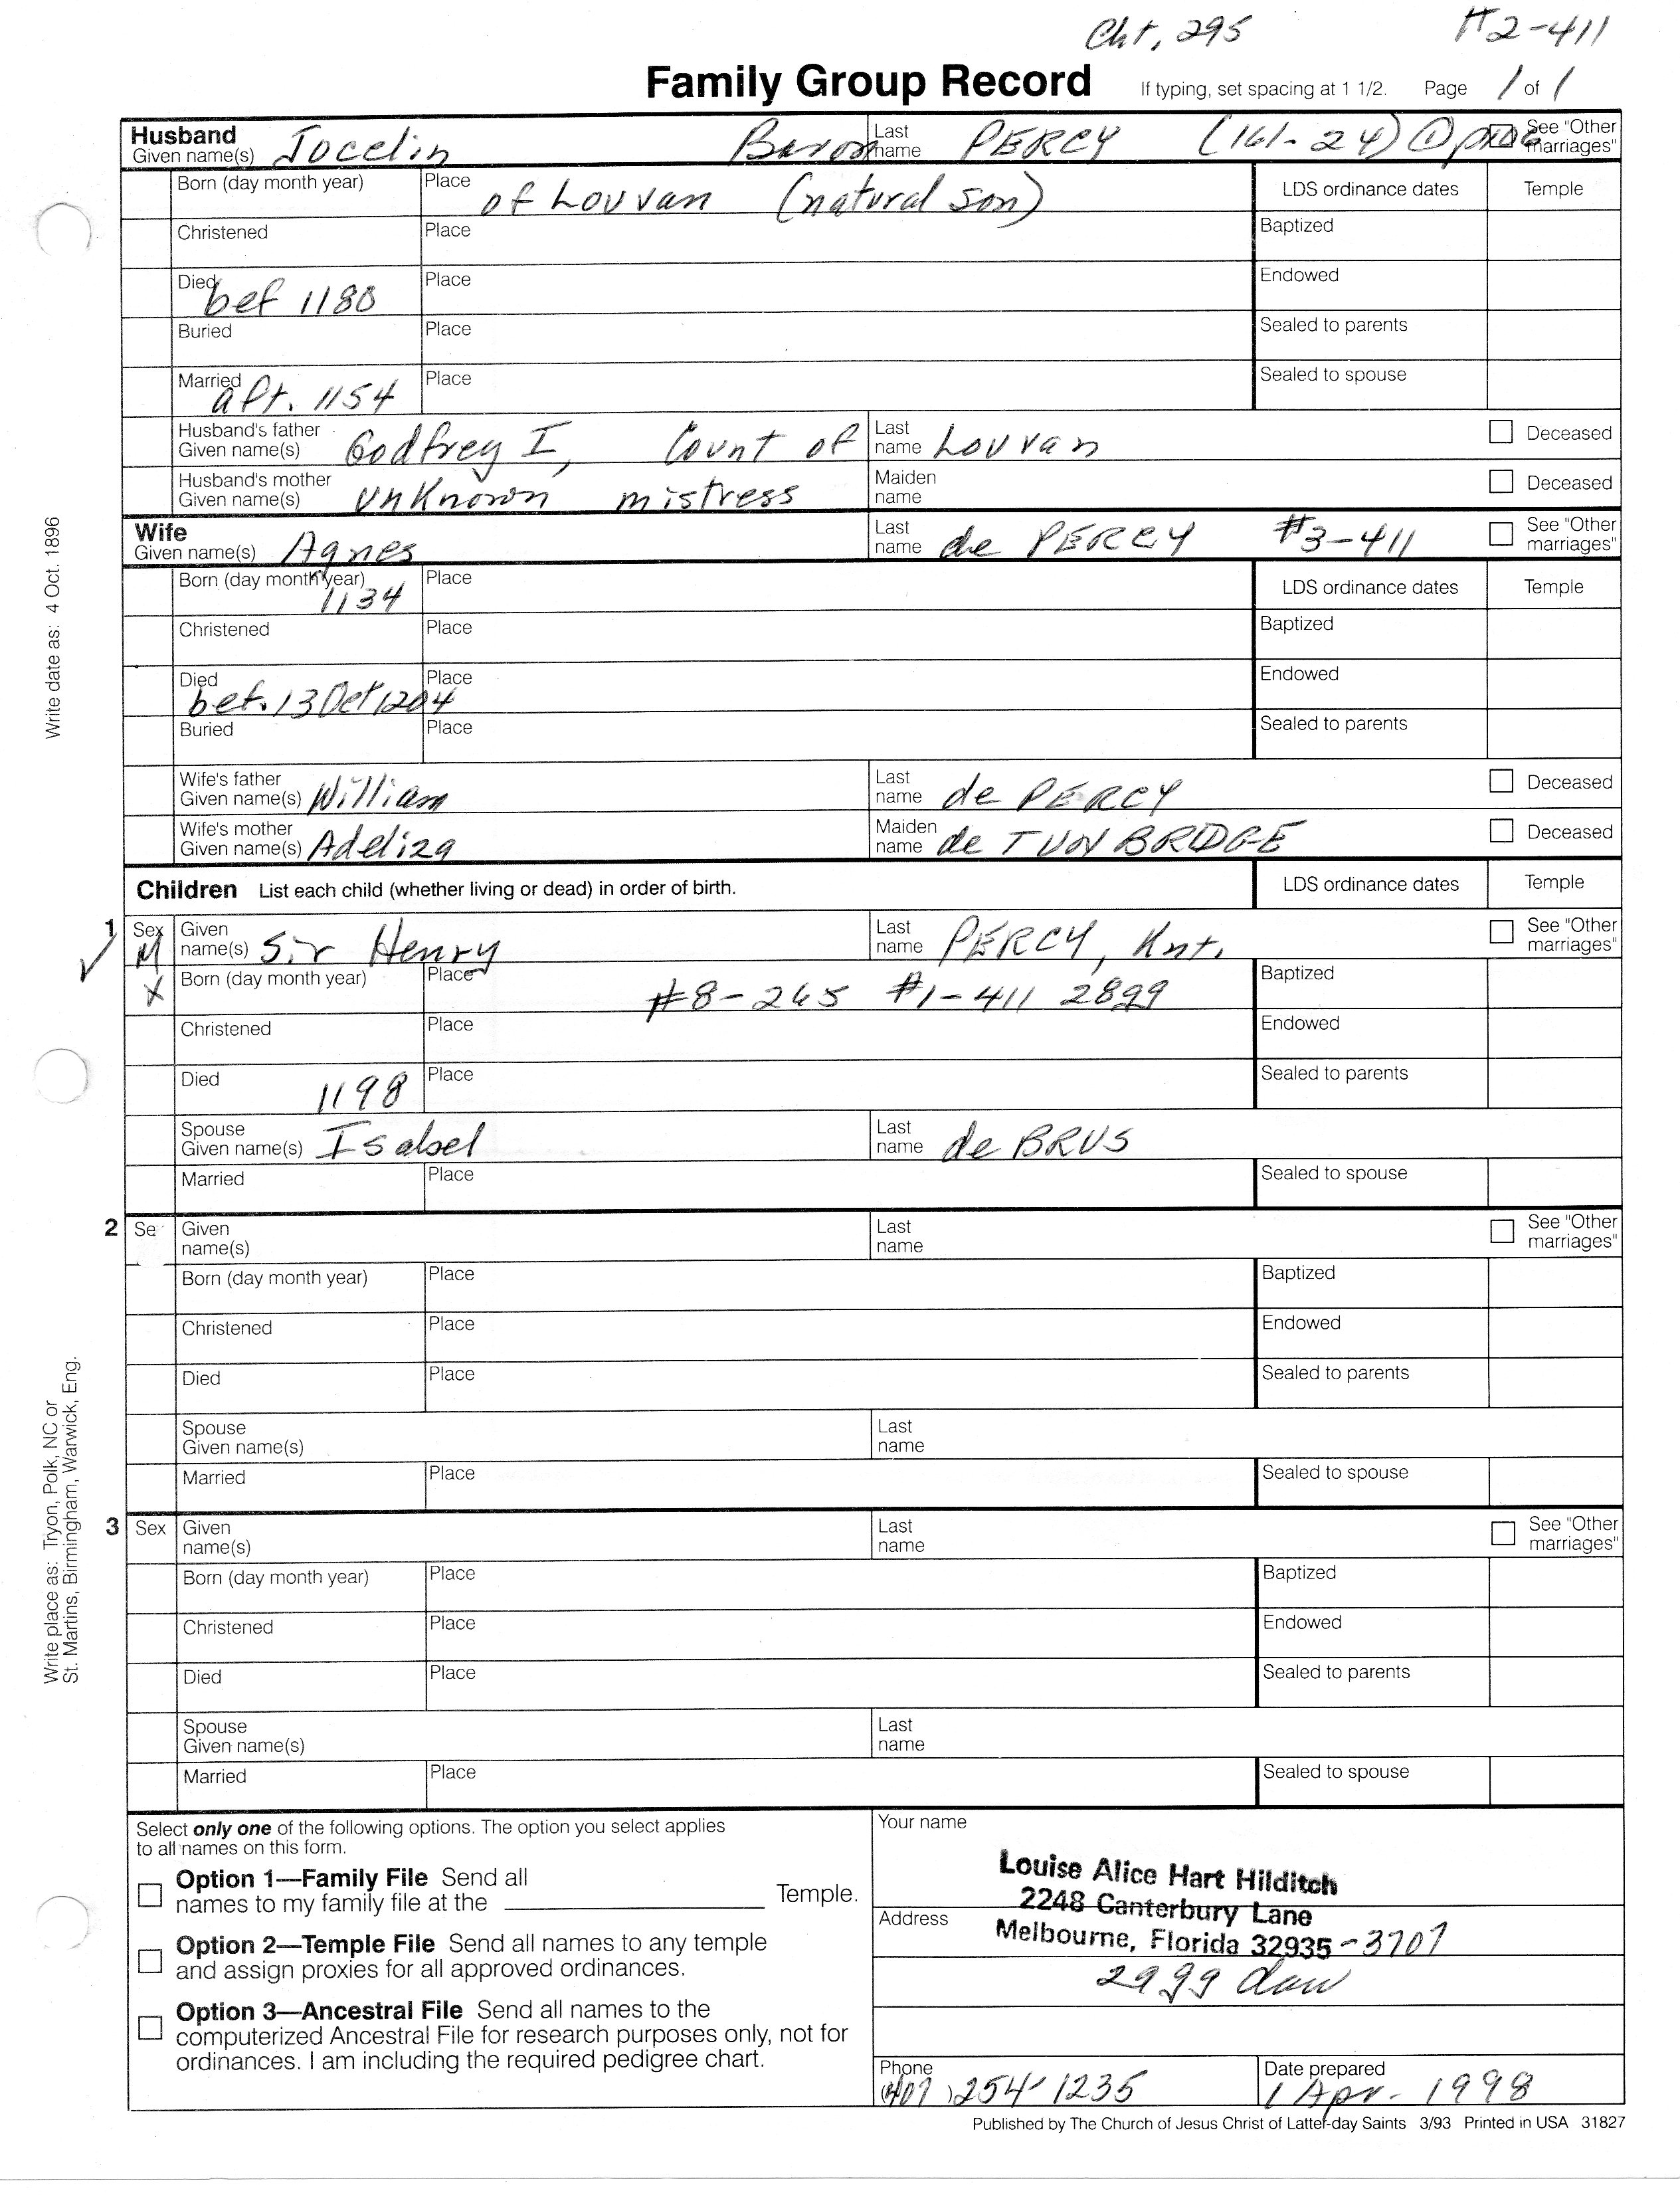 Cht, 295 #2-411
Family Group Record If typing, set spacing at 1 1/2. Page 1 of 1
Husband
Given name(s) Jocelin Baron Last name PERCY (161-24) See "Other marriages"
Born (day month year) Place of Louvan (natural son) LDS ordinance dates Temple
Christened Place Baptized
Died bef 1180 Place Endowed
Buried Place Sealed to parents
Married aft. 1154 Place Sealed to spouse
Husband's father Given name(s) Godfrey I, Count of Last name Louvan Deceased
Husband's mother Given name(s) Unknown mistress Maiden name Deceased
Wife
Given name(s) Agnes Last name de PERCY #3-411 See "Other marriages"
Born (day month year) 1134 Place LDS ordinance dates Temple
Christened Place Baptized
Died bef. 13 Oct 1204 Place Endowed
Buried Place Sealed to parents
Wife's father Given name(s) William Last name de PERCY Deceased
Wife's mother Given name(s) Adeliza Maiden name de TUNBRIDGE Deceased
Children List each child (whether living or dead) in order of birth. LDS ordinance dates Temple
1 Sex M Given name(s) Sir Henry Last name PERCY, Knt. See "Other marriages"
X Born (day month year) Place #8-265 #1-411 28gg Baptized
Christened Place Endowed
Died 1198 Place Sealed to parents
Spouse Given name(s) Isabel Last name de BRUS
Married Place Sealed to spouse
2 Se Given name(s) Last name See "Other marriages"
Born (day month year) Place Baptized
Christened Place Endowed
Died Place Sealed to parents
Spouse Given name(s) Last name
Married Place Sealed to spouse
3 Sex Given name(s) Last name See "Other marriages"
Born (day month year) Place Baptized
Christened Place Endowed
Died Place Sealed to parents
Spouse Given name(s) Last name
Married Place Sealed to spouse
Select only one of the following options. The option you select applies
to all names on this form.
Option 1—Family File Send all
names to my family file at the Temple.
Option 2—Temple File Send all names to any temple
and assign proxies for all approved ordinances.
Option 3—Ancestral File Send all names to the
computerized Ancestral File for research purposes only, not for
ordinances. I am including the required pedigree chart.
Your name
Louise Alice Hart Hilditch
2248 Canterbury Lane
Address
Melbourne, Florida 32935-3707
29gg dau
Phone (407) 254-1235 Date prepared 1 Apr. 1998
Published by The Church of Jesus Christ of Latter-day Saints 3/93 Printed in USA 31827
Write date as: 4 Oct. 1896
Write place as: Tryon, Polk, NC or
St. Martins, Birmingham, Warwick, Eng.